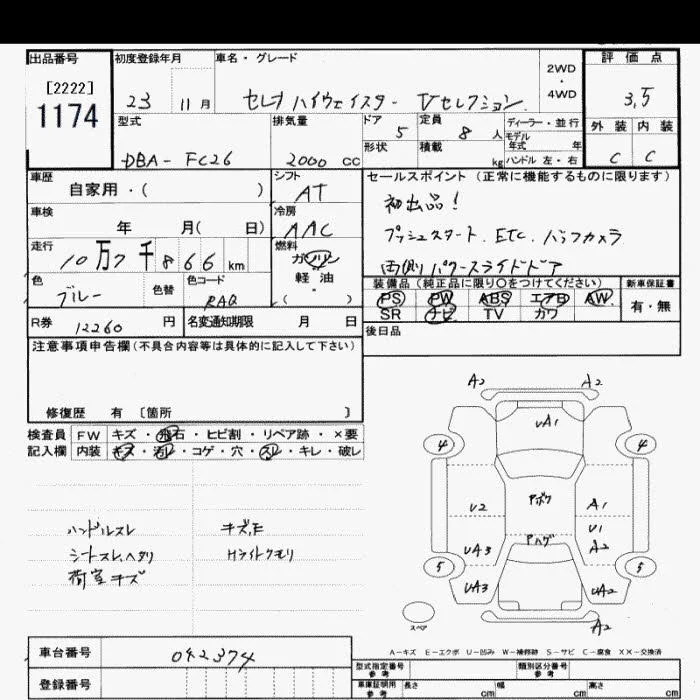 出品番号 初度登録年月 車名・グレード 2WD・4WD 評価点
[2222]
1174
23 11月 セレナ ハイウェイスター Vセレクション 3.5
型式 排気量 ドア 定員 ディーラー・並行 外装 内装
DBA- FC26 2000 cc 5 8人 モデル年式 年 C C
形状 積載 kg ハンドル 左・右
車歴 シフト セールスポイント(正常に機能するものに限ります)
自家用・( ) AT 初出品!
車検 冷房
年 月( 日) AAC プッシュスタート. ETC. バックカメラ
走行 燃料
10万7千866km ガソリン 両側パワースライドドア
色 色替 色コード 軽油・( )
ブルー RAQ
装備品(純正品に限り○をつけてください) 新車保証書
PS PW ABS エアB AW 有・無
SR ナビ TV カワ
R券 12260円 名変通知期限 月 日 後日品
注意事項申告欄(不具合内容等は具体的に記入して下さい)
修復歴 有 〔箇所 〕
検査員 FW キズ・飛石・ヒビ割・リペア跡・×要
記入欄 内装 キズ・汚レ・コゲ・穴・スレ・キレ・破レ
ハンドルスレ
シートスレ、ヘタリ
荷室キズ
キズ,E
Hライトクモリ
A2 A2
UA1
4 4
U2 アボウ A1
U1
UA3 アハゲ A2
5 5
UA3 UA2
スペア A2
A-キズ E-エクボ U-凹み W-補修跡 S-サビ C-腐食 XX-交換済
車台番号 042374
登録番号
型式指定番号 参考 類別区分番号 参考
車庫証明用 参考 長さ cm 幅 cm 高さ cm